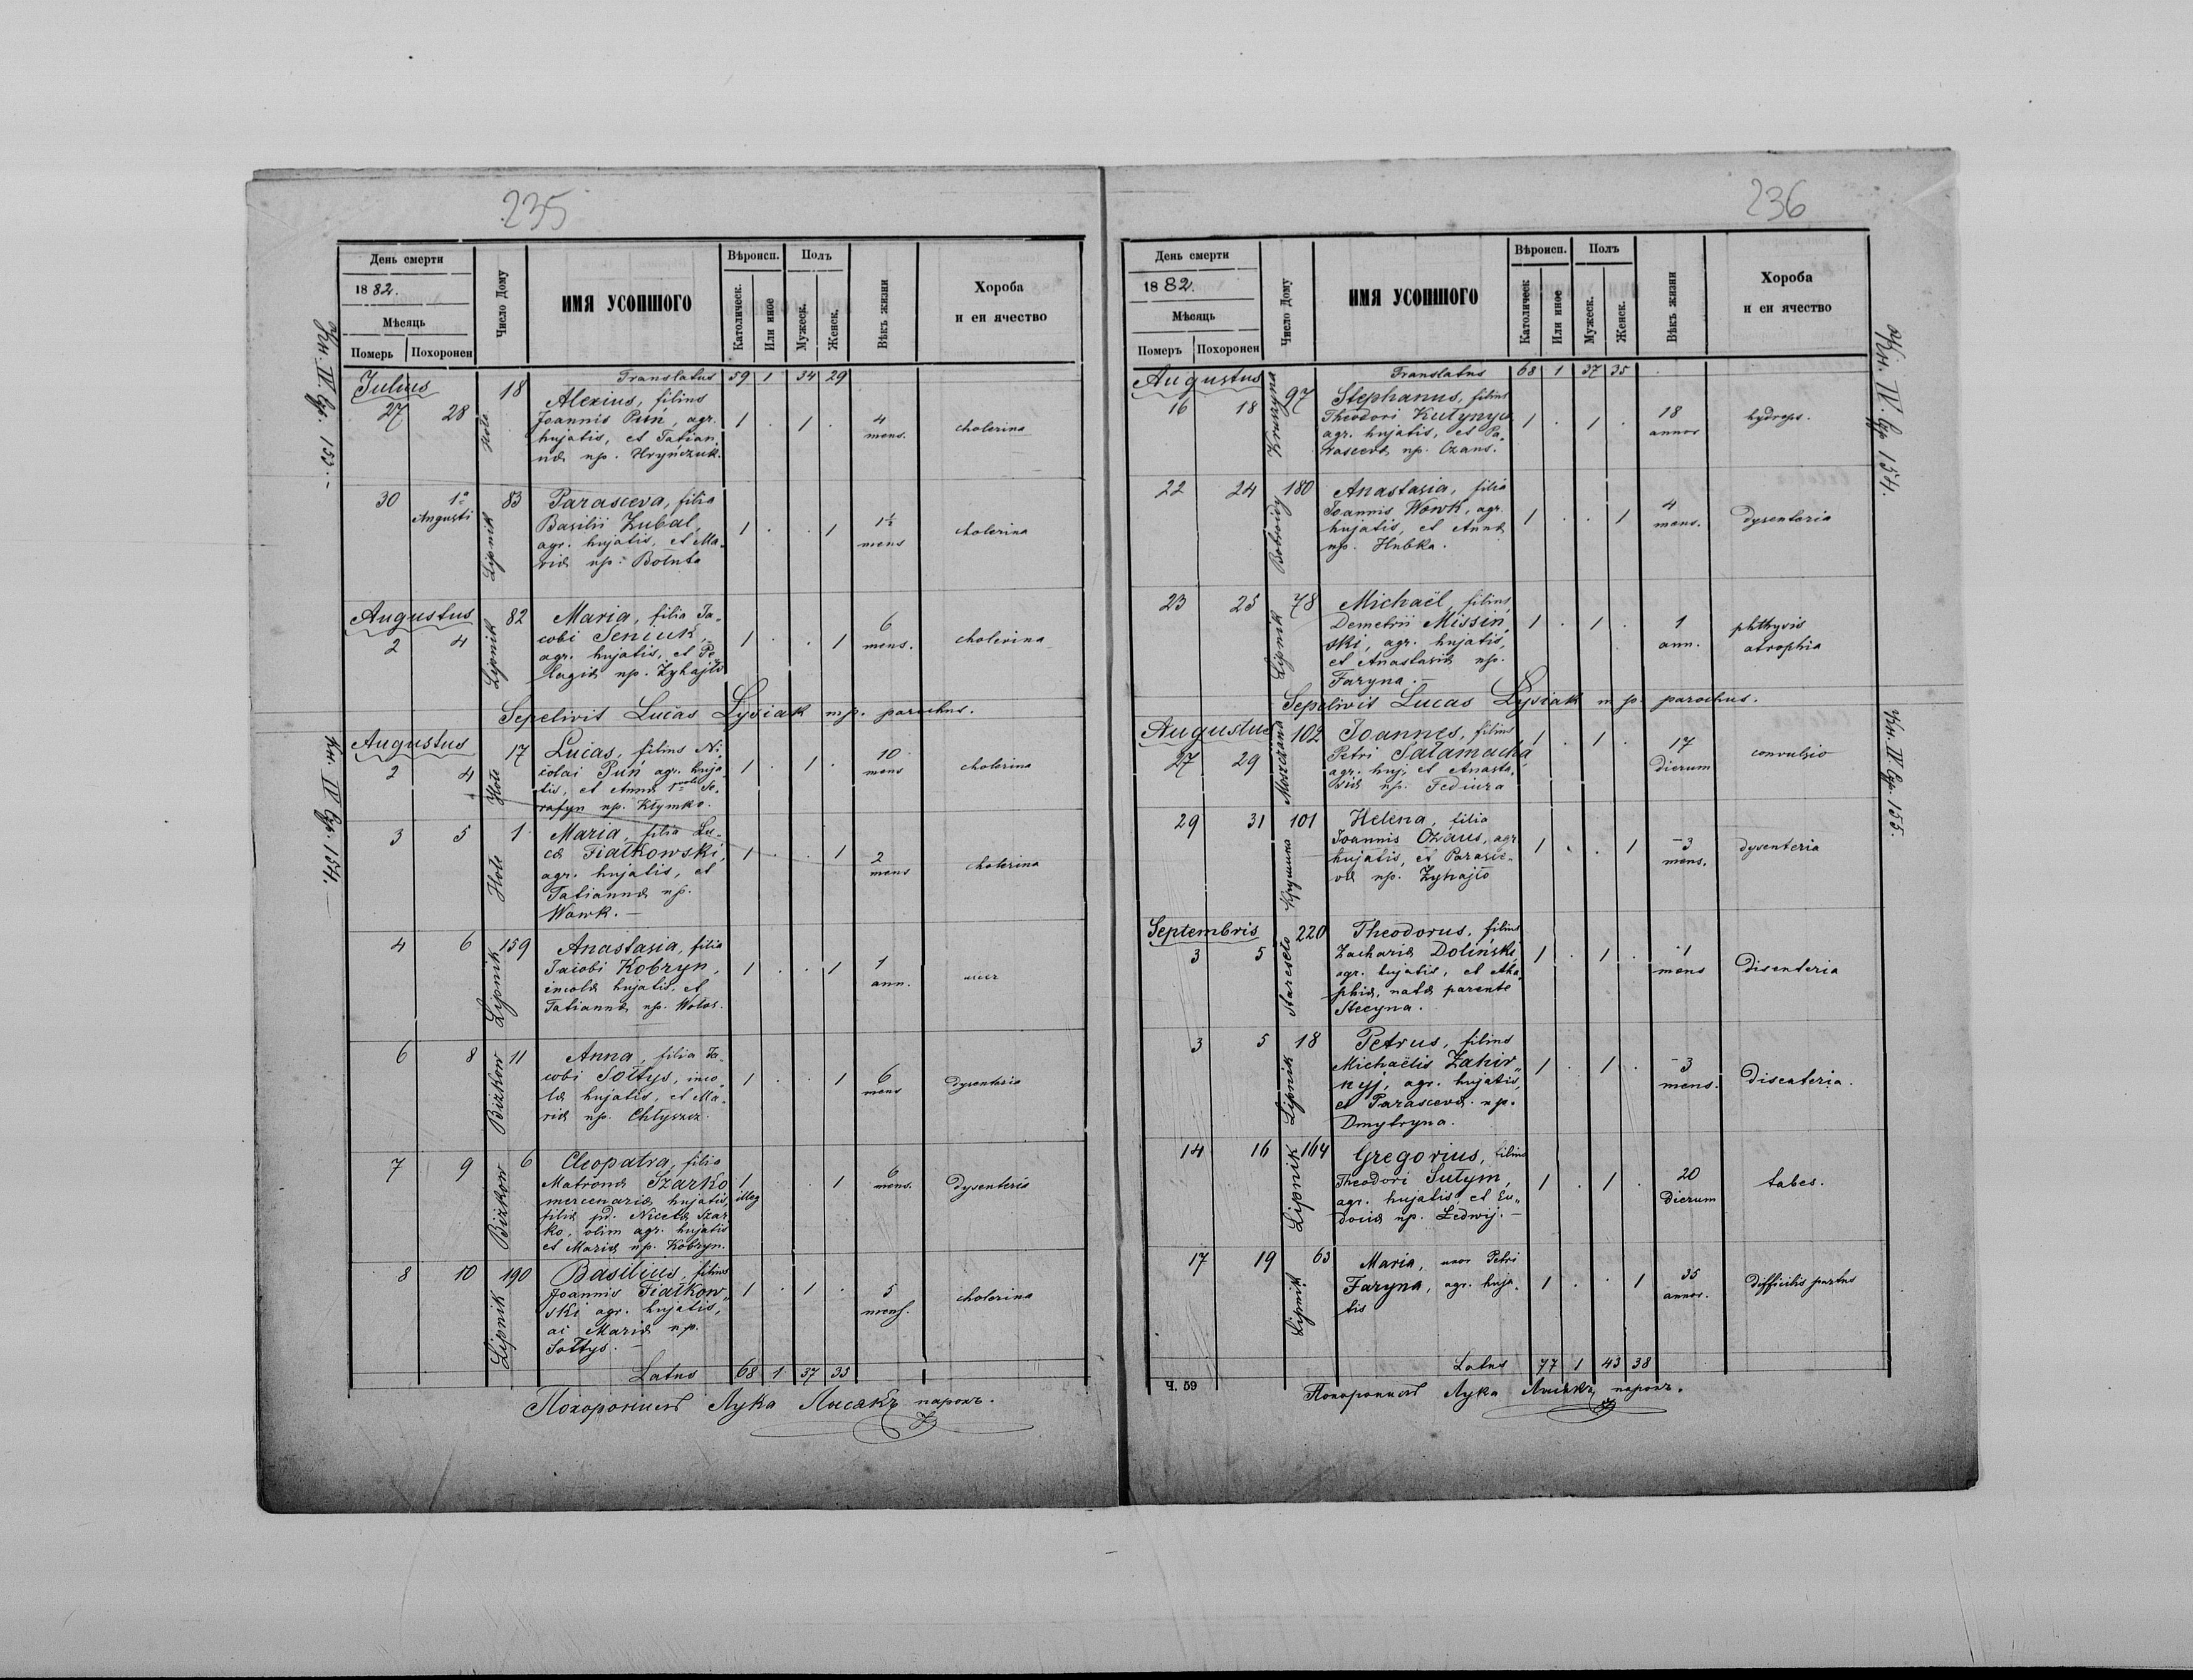 235
День смерти
1882.
Мѣсяць
Померь Похоронен
Число Дому
ИМЯ УСОПШОГО
Вѣроисп.
Католическ.
Или иное
Полъ
Мужеск.
Женск.
Вѣкъ жизни
Хороба
и еи ячество
Translatus 59 1 34 29
Julius
27 28 Hole 18
Alexius, filius
Joannis Puń, agr.
hujatis, et Tatian„
næ np. Hryńczuk.
1 . 1 . 4 mens. cholerina
30 1º Augusti Lipnik 83
Parasceva, filia
Basilii Zubal,
agr. hujatis, et Ma„
riæ np. Bołuta
1 . . 1 1½ mens cholerina
Augustus
2 4 Lipnik 82
Maria, filia Ja„
cobi Seniuk,
agr. hujatis, et Pe„
lagiæ np. Zyhajło
1 . . 1 6 mens. cholerina
Sepelivit Lucas Łysiak mp. parochus.
Augustus
2 4 Hole 17
Lucas, filius Ni„
colai Puń agr. huja„
tis, et Annæ 1º voto Se„
rafyn np. Kłymko.
1 . 1 . 10 mens cholerina
3 5 Hole 1
Maria, filia Lu„
cæ Fiałkowski,
agr. hujatis, et
Tatiannæ np.
Wowk. —
1 . . 1 2 mens cholerina
4 6 Lipnik 159
Anastasia, filia
Jacobi Kobryn,
incolæ hujatis, et
Tatiannæ np. Wołos.
1 . . 1 1 ann.
6 8 Bizkow 11
Anna, filia Ja„
cobi Sołtys, inco„
læ hujatis, et Ma„
riæ np. Chłyszcz.
1 . . 1 6 mens dysenteria
7 9 Bizkow 6
Cleopatra, filia
Matronæ Szarko
mercenariæ hujatis,
filiæ pd. Nicetæ Szar
ko, olim agr. hujatis
et Mariæ np. Kobryn.
1 illeg . 1 6 mens. dysenteria
8 10 Lipnik 190
Basilius, filius
Joannis Fiałkow„
ski agr. hujatis,
ac Mariæ np.
Sołtys. —
1 . 1 . 5 mens. cholerina
Latus 68 1 37 35
Похоронилъ Лука Лысякъ парохъ.
236
День смерти
1882.
Мѣсяць
Померъ Похоронен
Число Дому
ИМЯ УСОПШОГО
Вѣроисп.
Католическ
Или иное
Полъ
Мужеск.
Женск.
Вѣкъ жизни
Хороба
и еи ячество
Translatus 68 1 37 35
Augustus
16 18 Kruszyna 97
Stephanus, filius
Theodori Kutynycz
agr. hujatis, et Pa„
rascevæ np. Ozaus.
1 . 1 . 18 annor hydrops.
22 24 180
Anastasia, filia
Joannis Wowk, agr.
hujatis, et Annæ
np. Hubka.
1 . . 1 4 mens. dysenteria
23 25 Lipnik 78
Michaël, filius
Demetrii Missiń„
ski, agr. hujatis,
et Anastasiæ np.
Faryna. —
1 . 1 . 1 ann. phthysis
atrophia
Sepelivit Lucas Łysiak mp. parochus.
Augustus
27 29 Moszczana 102
Joannes, filius
Petri Sałamacha
agr. huj. et Anasta„
siæ np. Fediura
1 . 1 . 17 dierum convulsio
29 31 Крушина 101
Helena, filia
Joannis Ozaus, agr
hujatis, et Parasce„
væ np. Zyhajło
1 . . 1 3 mens. dysenteria
Septembris
3 5 Stareseło 220
Theodorus, filius
Zachariæ Doliński,
agr. hujatis, et Aha„
phiæ, natæ parente
Stecyna.
1 . 1 . 1 mens disenteria
3 5 Lipnik 18
Petrus, filius
Michaëlis Zahir„
nyj, agr. hujatis,
et Parascevæ np.
Dmytryna.
1 . 1 . 3 mens. disenteria.
14 16 Lipnik 164
Gregorius, filius
Theodori Sutym,
agr. hujatis, et Eu„
dociæ np. Ledwij. —
1 . 1 . 20 dierum tabes.
17 19 Lipnik 63
Maria, uxor Petri
Faryna, agr. huja„
tis
1 . . 1 35 annor. difficilis partus
Latus 77 1 43 38
Ч. 59
Похоронилъ Лука Лысякъ парохъ.